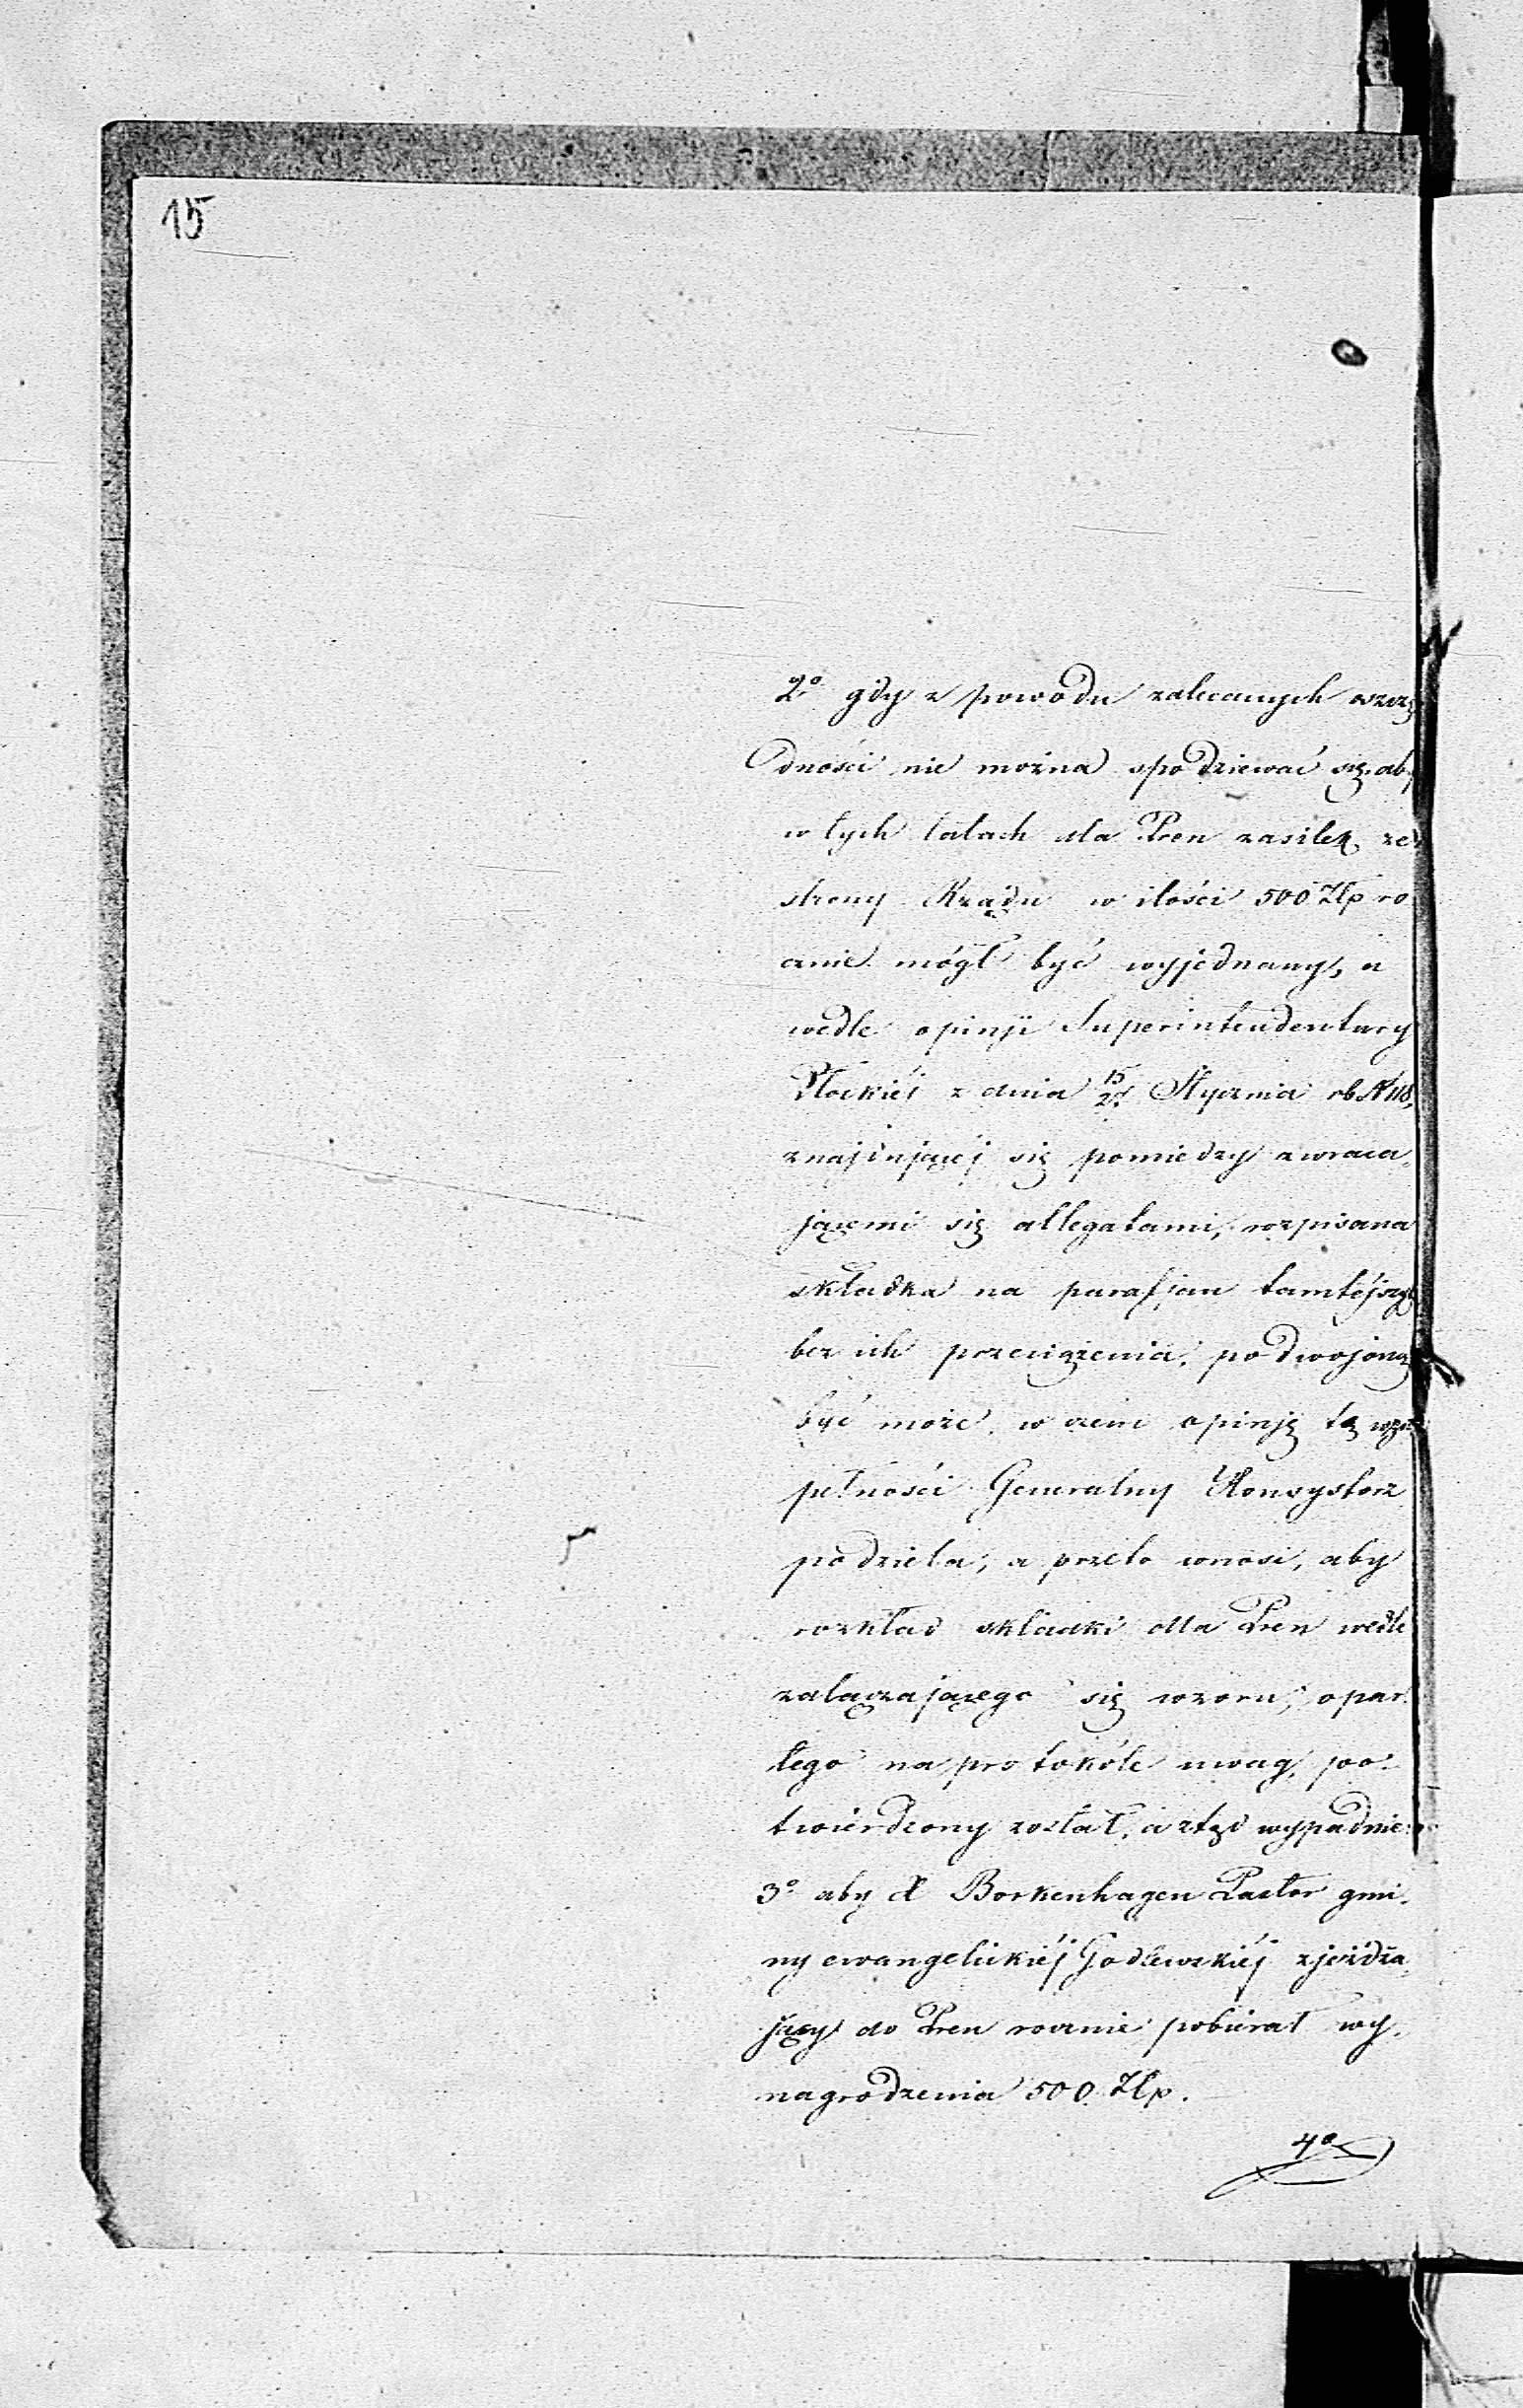 15
2° gdy z powodu zalecanych oszczę
dności nie można spodziewać się, aby
w tych latach dla Pren zasiłek ze
strony Rządu w ilości 500 Złp ro
cznie mógł być wyjednany, a
wedle opinji Superintendentury
Płockiéj z dnia 15/27 Stycznia rb N 118,
znajdującéj się pomiędzy zwraca,
jącemi się allegatami, rozpisana
składka na parafjan tamtéjszych
bez ich przeciążenia, podwojoną
być może, w czem opinję tę w zu
pełności Generalny Konsystorz
podziela; a przeto wnosi, aby
rozkład składki dla Pren wedle
załączającego się wzoru, opar
tego na protokóle uwag, po
twierdzony został, a ztąd wypadnie:
3° aby X Borkenhagen Pastor gmi,
ny ewangelickiéj Godlewskiéj zjeżdża,
jący do Pren rocznie pobierał wy,
nagrodzenia 500 Złp.
4°